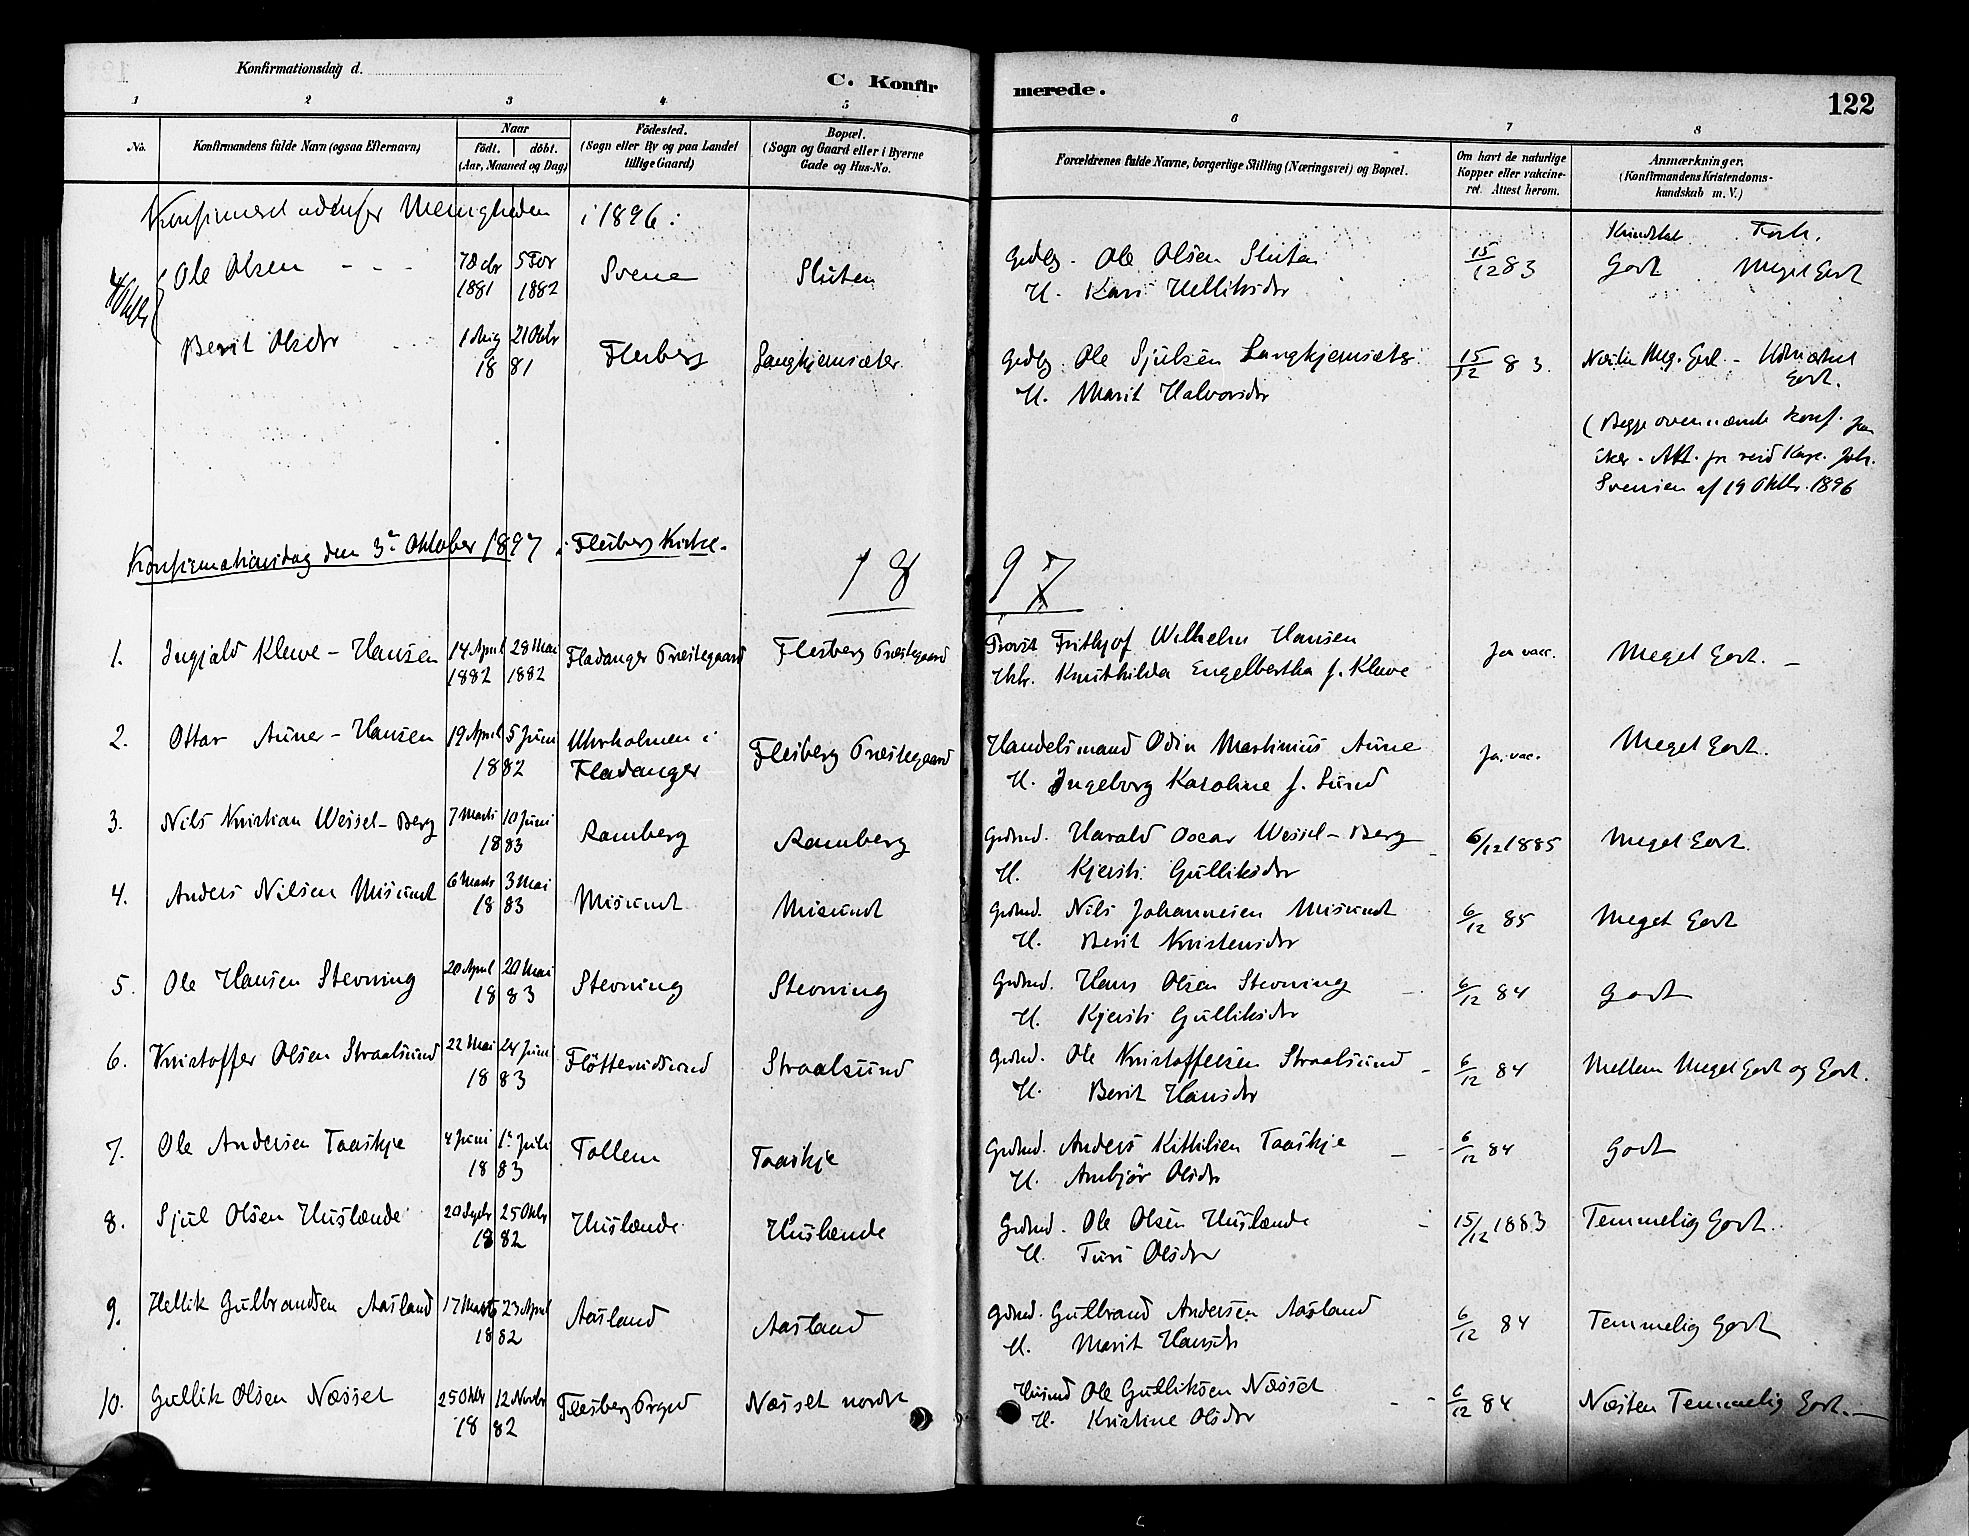 Konfirmationsdag d.
C. Konfir
merede.
122
1 2 3 4 5 6 7 8
No.
Konfirmandens fulde Navn (ogsaa Efternavn)
Naar
födt. döbt.
(Aar, Maaned og Dag)
Födested.
(Sogn eller By og paa Landet
tillige Gaard)
Bopæl.
(Sogn og Gaard eller i Byerne
Gade og Hus-No.
Forældrenes fulde Navne, borgerlige Stilling (Næringsvei) og Bopæl.
Om havt de naturlige
Kopper eller vakcine-
ret. Attest herom.
Anmærkninger.
(Konfirmandens Kristendoms-
kundskab m. V.)
Konfirmeret udenfor Menigheden i 1896:
Kundskab Forh.
Ole Olsen - - - 5 Febr Svene Sluten Ole Olsen Sluten 15/12 83 Godt Meget Godt
1881 1882 H. Kari Helliksdr
Berit Olsdr 1 Aug 21 Oktr Flesberg Langkjemsæter Ole Sjulsen Langkjemsæter 15/12 83. Meg. Godt - Udmærket
18 81 H. Marit Halvorsdr Godt.
(Begge ovennævnte Konf. fra
Eker. Att. fra resd Kap. Joh.
Svensen af 19 Oktbr. 1896
Konfirmationsdag den 3e Oktober 1897 i Flesberg Kirke.
18 97
1. Ingjald Kluwe - Hansen 14 April 28 Mai Fladanger Præstegaard Flesberg Præstegaard Provst Frithjof Wilhelm Hansen Ja vacc. Meget Godt. -
1882 1882 Knuthilda Engelbertha f. Kluwe
2. Ottar Aune - Hansen 19 April 5 Juni Uhrholmen i Flesberg Præstegaard Handelsmand Odin Martinius Aune Ja. vac. Meget Godt.
1882 Fladanger H. Ingeborg Karoline f. Lund
3. Nils Kristian Wessel - Berg 7 Marts 10 Juni Ramberg Ramberg Grdmd. Harald Oscar Wessel - Berg 6/12 1885 Meget Godt.
18 83 H. Kjersti Gulliksdr
4. Anders Nilsen Misundt 6 Marts 3 Mai Misundt Misundt Grdmd. Nils Johannesen Misundt 6/12 85 Meget Godt
18 83 H. Berit Kristensdr
5. Ole Hansen Stevning 20 April 20 Mai Stevning Stevning Grdmd. Hans Olsen Stevning - 6/12 84 Godt
18 83 H. Kjersti Gulliksdr
6. Kristoffer Olsen Straalsund 22 Mai 24 Juni Straalsund Grdmd. Ole Kristoffersen Straalsund - 6/12 84 Mellem Meget Godt og Godt.
18 83 H. Berit Hansdr
7. Ole Andersen Taaskje 4 Juni 1e Juli Tollem Taaskje Grdmd. Anders Kittilsen Taaskje - - 6/12 84 Godt
18 83 H. Anbjör Olsdr
8. Sjul Olsen Huslænde 20 Septr 25 Oktr Huslænde Huslænde Grdmd. Ole Olsen Huslænde - 15/12 1883 Temmelig Godt.
18 82 H. Turi Olsdr
9. Hellik Gulbrandsen Aasland 17 Marts 23 April Aasland Aasland Grdmd. Gulbrand Andersen Aasland 6/12 84 Temmelig Godt
18 82 H. Marit Hansdr
10. Gullik Olsen Næsset 25 Oktr 12 Novbr Flesberg Prgrd Næsset nordt Husmd Ole Gulliksen Næsset - - 6/12 84 Næsten Temmelig Godt. -
18 82 H. Kristine Olsdr